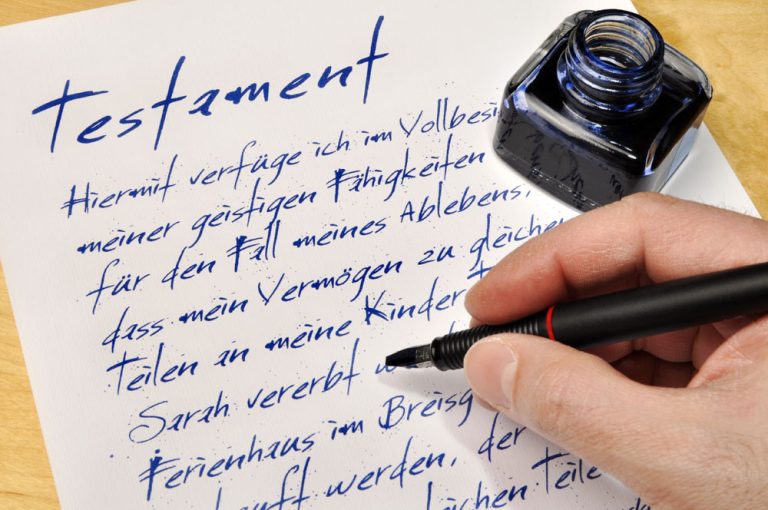 Testament
Hiermit verfüge ich im Vollbesi
meiner geistigen Fähigkeiten
für den Fall meines Ablebens,
dass mein Vermögen zu gleichen
Teilen an meine Kinder T
Sarah vererbt
Ferienhaus im Breisg
werden, der
Teile